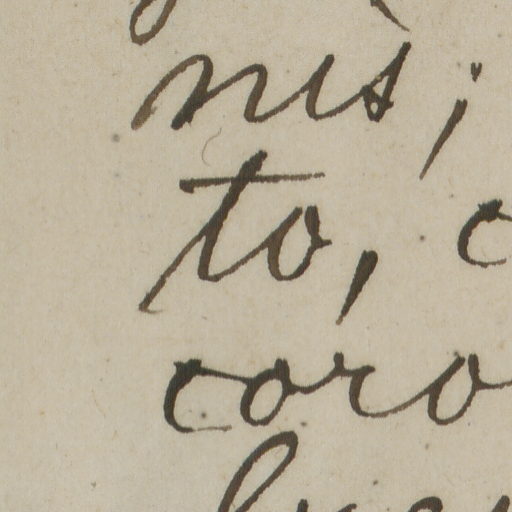 nis;
to, c
coro